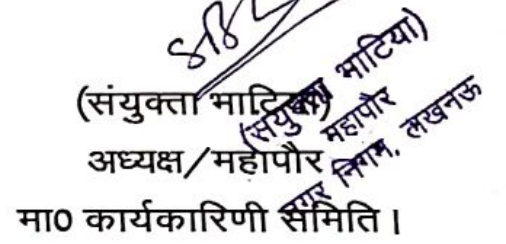 (संयुक्ता भाटिया)
अध्यक्ष/महापौर
मा0 कार्यकारिणी समिति।
(संयुक्ता भाटिया)
महापौर
नगर निगम, लखनऊ